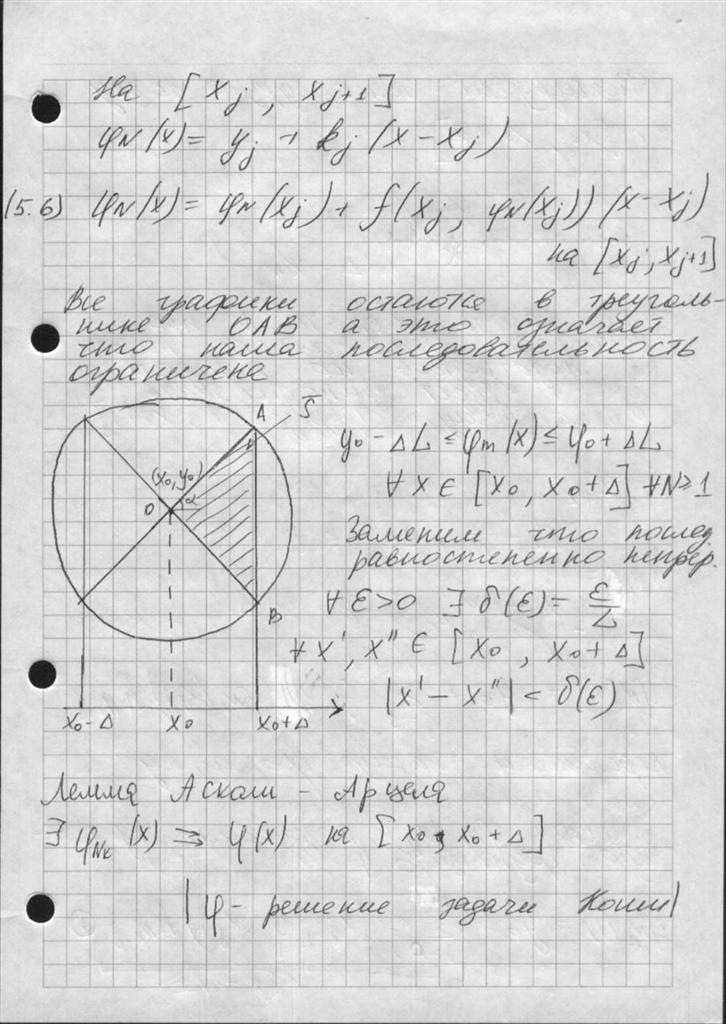 На [xj, xj+1]
φN(x) = yj + kj(x-xj)
(5.6) φN(x) = φN(xj) + f(xj, φN(xj))(x-xj)
на [xj, xj+1]
Все графики остаются в треуголь-
нике OAB а это означает
что наша последовательность
ограничена
A S̄
y0 - ΔL ≤ φm(x) ≤ φ0 + ΔL
(x0, y0)
∀ x ∈ [x0, x0+Δ] ∀N≥1
O α
Заменим что послед.
равностепенно непрер.
∀ ε>0 ∃ δ(ε) = ε/L
B
∀ x', x'' ∈ [x0, x0+Δ]
|x' - x''| < δ(ε)
x0-Δ x0 x0+Δ
Лемма Асколи - Арцела
∃ φNk(x) ⇒ φ(x) на [x0, x0+Δ]
|φ - решение задачи Коши|